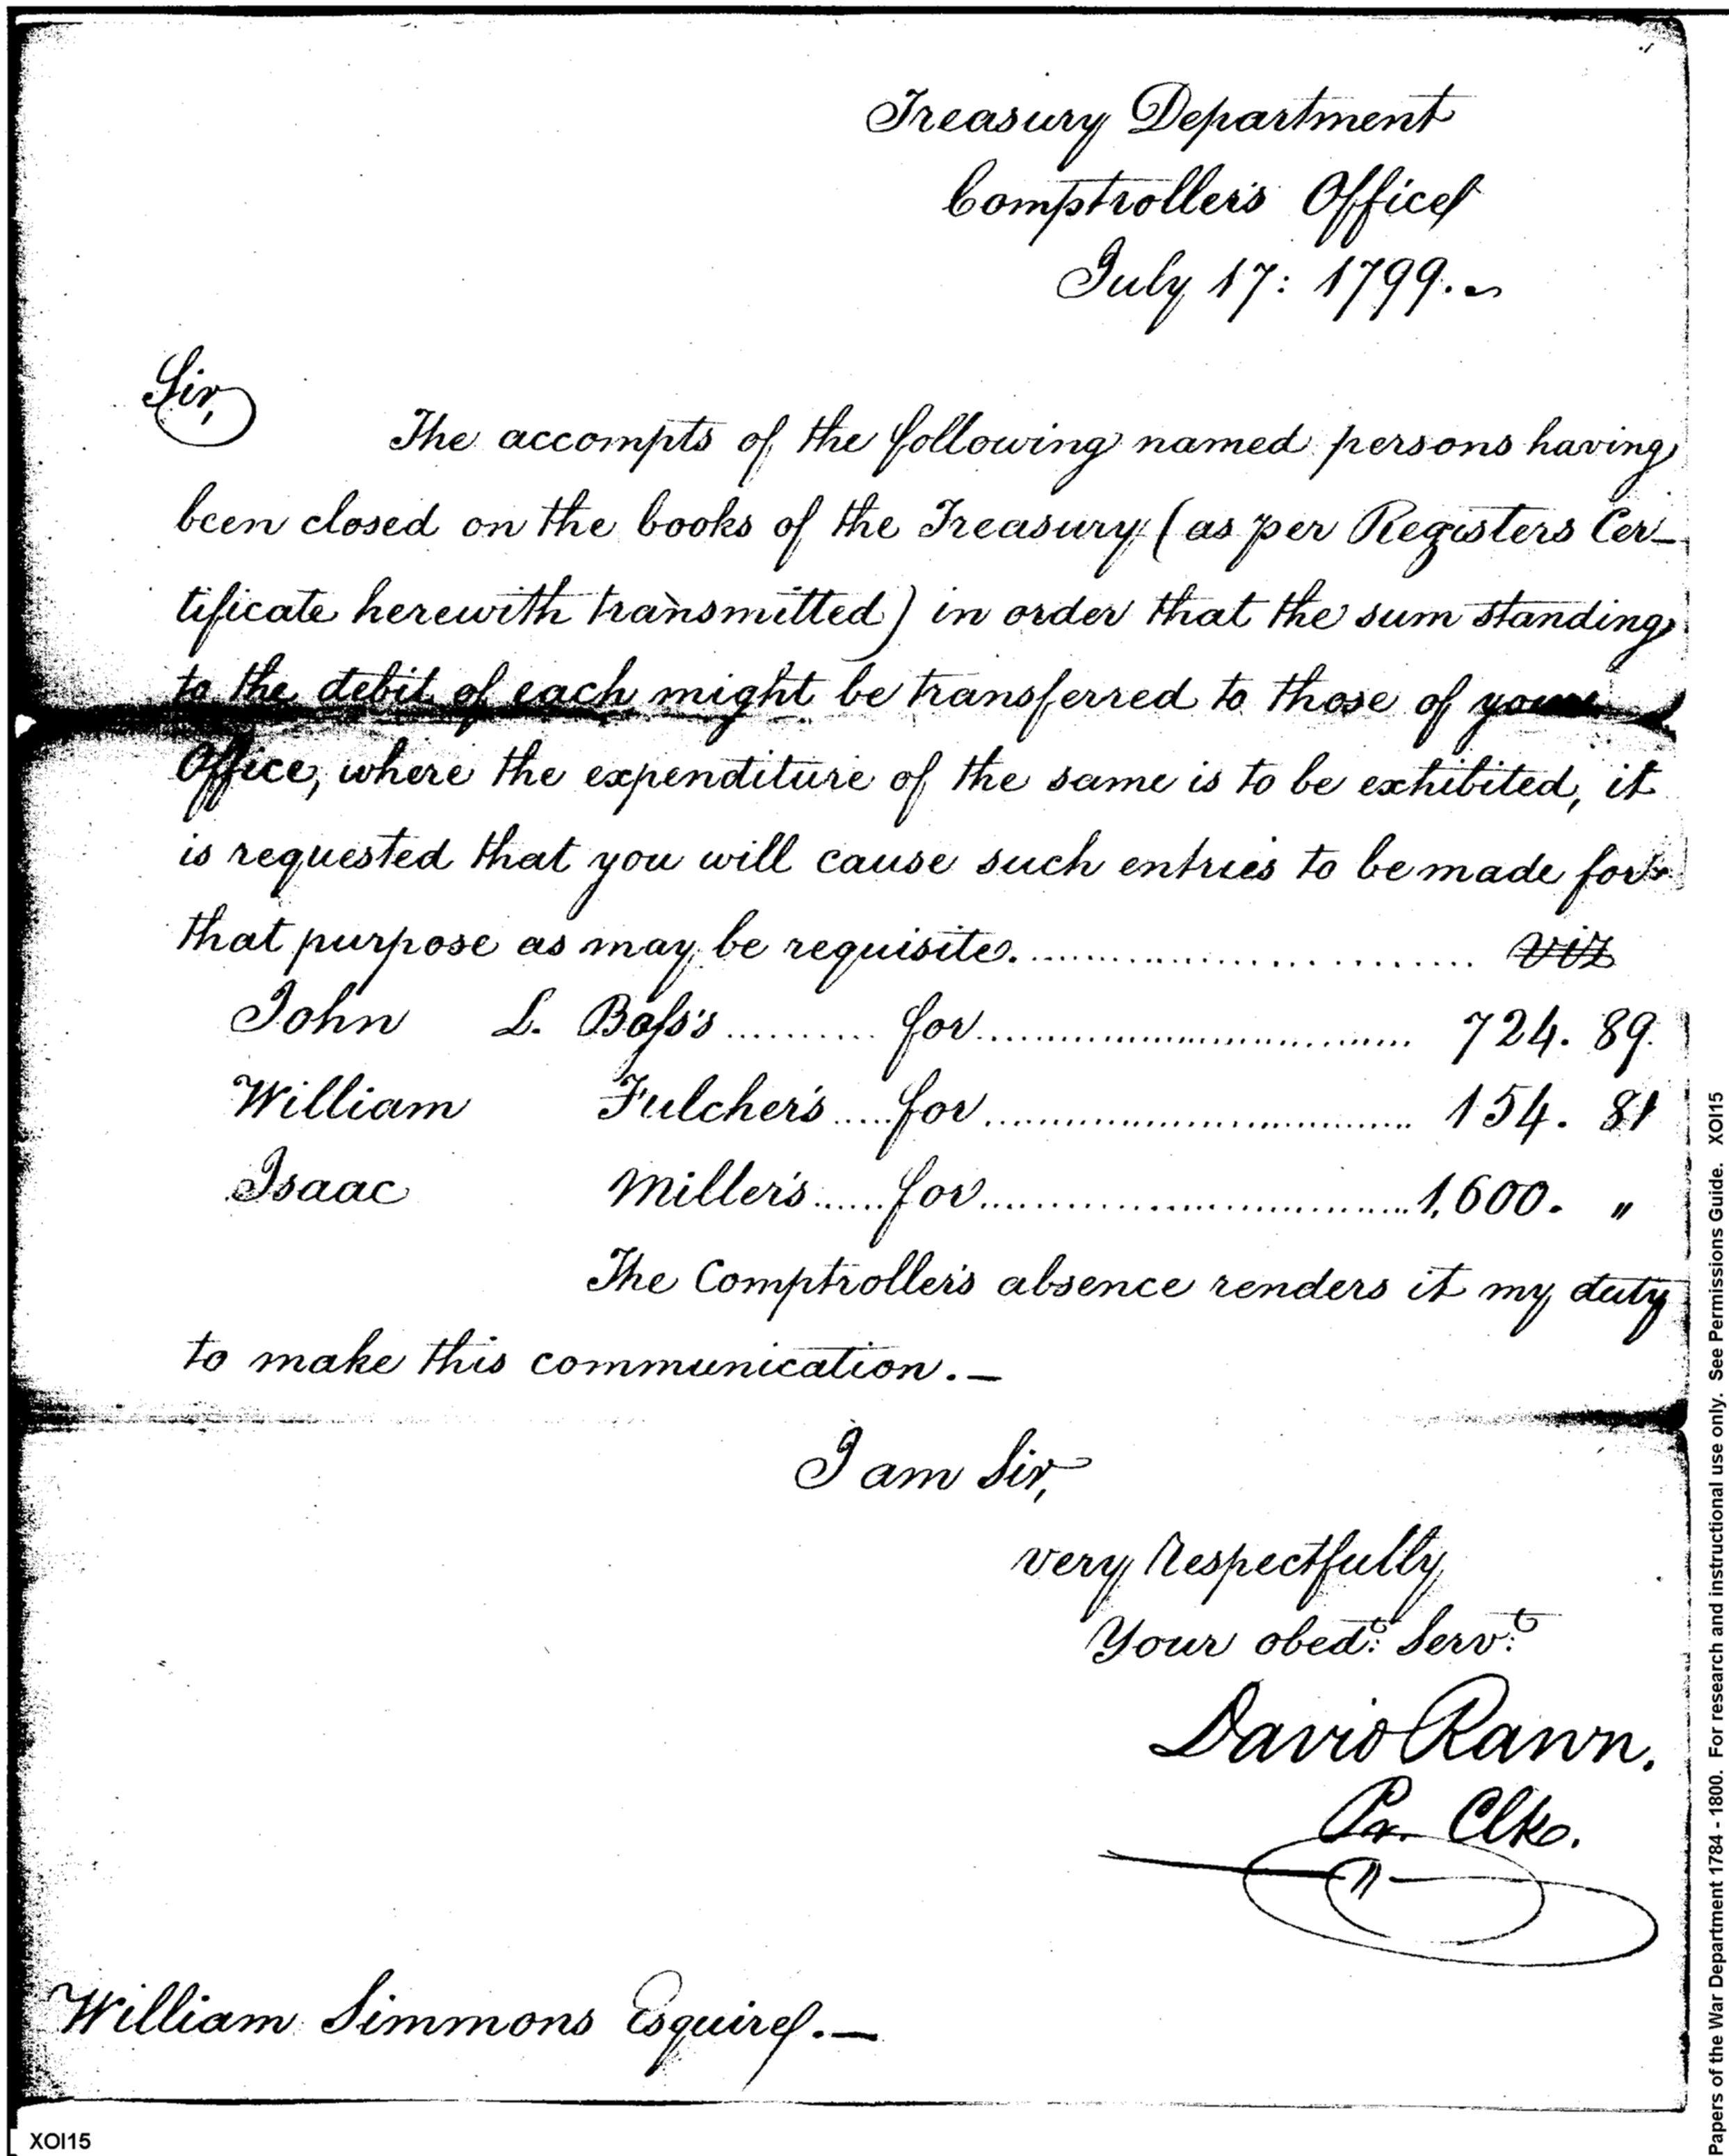 Treasury Department
Comptroller's Office
July 17: 1799.
Sir,
The accompts of the following named persons having
been closed on the books of the Treasury (as per Registers Cer-
tificate herewith transmitted) in order that the sum standing
to the debit of each might be transferred to those of your
Office, where the expenditure of the same is to be exhibited, it
is requested that you will cause such entries to be made for
that purpose as may be requisite. .......... viz
John L. Bass's .......... for .......... 724. 89.
William Fulcher's .... for .......... 154. 81
Isaac Miller's ...... for .......... 1,600. "
The Comptroller's absence renders it my duty
to make this communication. —
I am Sir,
very respectfully
Your obedt: Servt:
David Rawn.
Pr. Clk.
William Simmons Esquire. —
XOI15
Papers of the War Department 1784 - 1800. For research and instructional use only. See Permissions Guide. XOI15